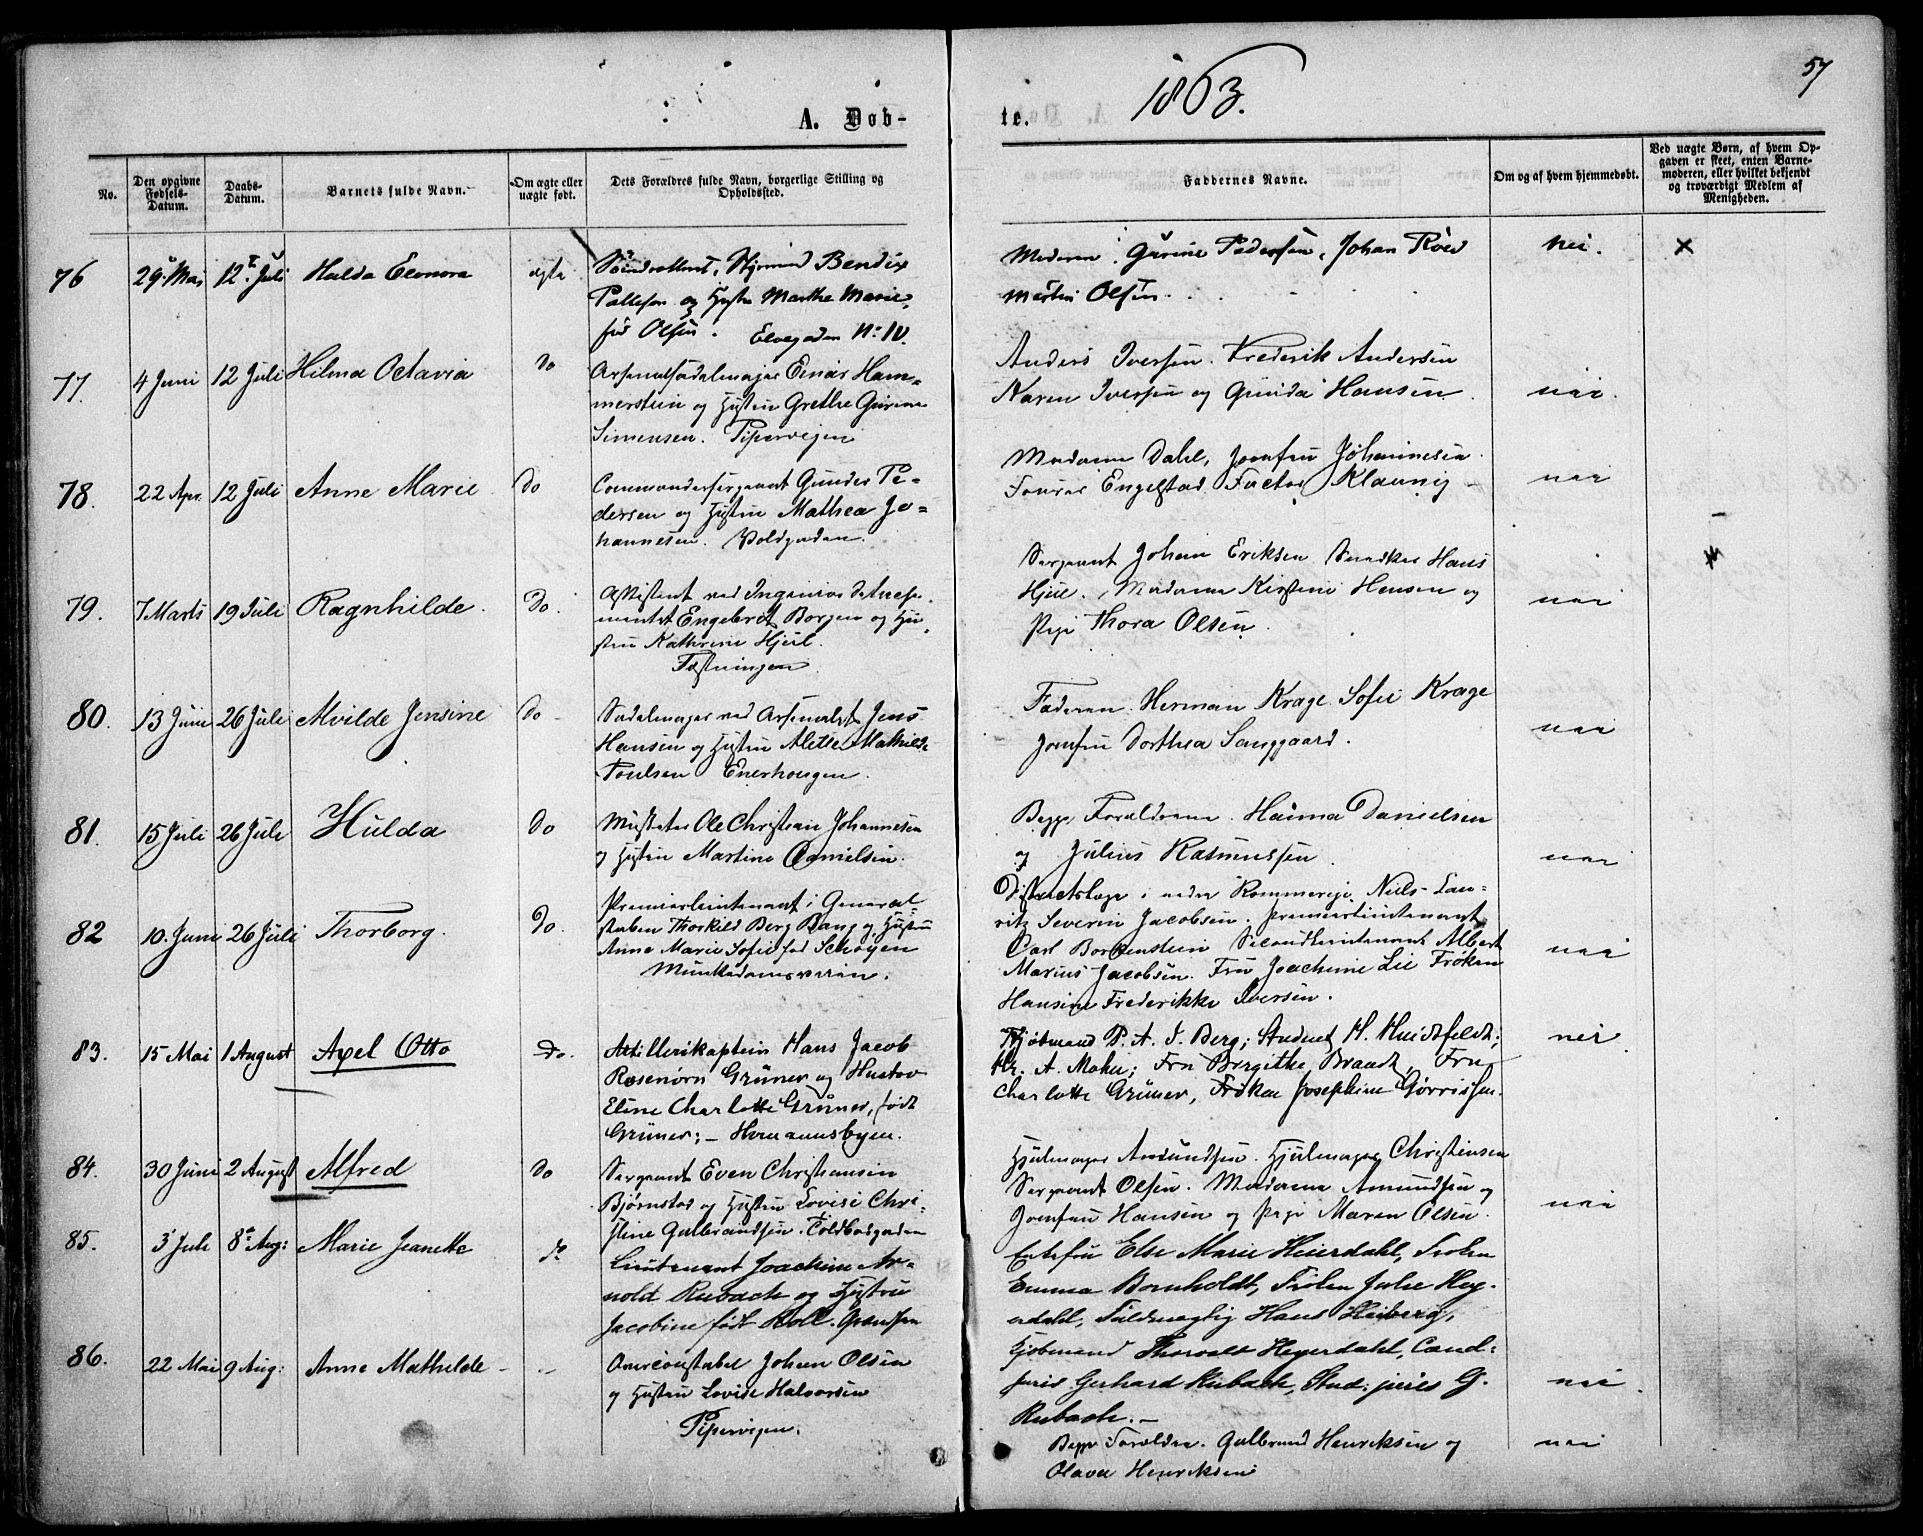 1863.
57
A. Døb-
te.
No.
Den opgivne Fødsels-Datum.
Daabs-Datum.
Barnets fulde Navn.
Om ægte eller uægte født.
Dets Forældres fulde Navn, borgerlige Stilling og Opholdssted.
Faddernes Navne.
Om og af hvem hjemmedøbt.
Ved uægte Børn, af hvem Opgaven er skeet, enten Barnemoderen, eller hvilket bekjendt og troværdigt Medlem af Menigheden.
76 29 Mai 12 Juli Hulda Eleonora ægte
Bendix
og Hustru Marthe Marie
Olsen. Elvegaden No 10.
Moderen. Gurine Pedersen, Johan
Martin Olsen.
nei.
77. 4 Juni 12 Juli Hilma Octavia do
Arsenalsadelmager Einar Ham-
merstein og Hustru Grethe Gurine
Simensen. Pipervigen
Anders Iversen. Frederik Andersen
Karen Iversen og Gunda Hansen.
nei.
78. 22 Apr. 12 Juli Anne Marie do
Commandersergeant Gunder Pe-
dersen og Hustru Mathea Jo-
hannesen. Voldgaden.
Madame Dahl, Jomfru Johannesen
Engelstad
nei
79. 7 Marts 19 Juli Ragnhilde. Do.
Assistent ved Ingenieur Detache-
mentet Engebret Borgen og Hu-
stru Kathrine Hjul.
Fæstningen.
Sergeant Johan Eriksen Snedker Hans
Hjul. Madame Kirstine Hansen og
Pige Thora Olsen.
nei
80. 13 Juni 26 Juli Alvilde Jensine Do
Sadelmager ved Arsenalet Jens
Hansen og Hustru Alette Mathilde
Poulsen Enerhougen.
Faderen. Herman Krage Sofie Krage
Jomfru Dorthea Sanggaard.
nei
81. 15 Juli 26 Juli Hulda Do
Ole Christian Johannesen
og Hustru Martine Danielsen.
Begge Forældrene. Hanna Danielsen
og Julius Rasmussen.
nei
82 10. Juni 26 Juli Thorborg. Do.
Premierlieutenant i General-
staben Thorkild Berg Bang og Hustru
Anne Marie Sofie fød Schøyen
Munkedamsveien.
Districtslæge i nedre Rommerige Niels Lau-
ritz Severin Jacobsen. Premierlieutenant
Carl Borkenstein Secondlieutenant Albert
Marius Jacobsen. Fru Joachime Lie Frøken
Hansine Frederikke Iversen.
nei
83. 15 Mai 1 August Axel Otto Do.
Artillerikaptein Hans Jacob
Rosenørn Grüner og Hustru
Eline Charlotte Grüner, født
Grüner; – Homansbyen.
Kjøbmand P. A. J. Berg; Student H. Huitfeldt;
Hr. A. Mohr; Fru Birgithe Brandt, Fru
Charlotte Grüner, Frøken Josephine Gørrissen.
nei
84. 30 Juni 2 August Alfred do
Sergeant Even Christiansen
Bjørnstad og Hustru Lovise Chri-
stine Gulbrandsen. Toldbodgaden
Hjulmager Amundsen. Hjulmager Christensen
Sergeant Olsen. Madame Amundsen og
Jomfru Hansen og Pige Maren Olsen.
nei
85. 3 Juli 8 Aug: Marie Jeanette do
Lieutenant Joachim Ar-
nold Rubach og Hustru
Jacobine født Boll. Grændsen
Enkefru Else Marie Heierdahl, Frøken
Emma Bornholdt, Frøken Julie Hey-
erdahl, Fuldmægtig Hans Heiberg,
Kjøbmand Thorvald Heyerdahl, Cand:
juris Gerhard Rubach, Stud: juris G.
Rubach. –
nei.
86. 22 Mai 9 Aug: Anne Mathilde – –
Overconstabel Johan Olsen
og Hustru Lovise Halvorsen
Pipervigen.
Begge Forældre. Gulbrand Henriksen og
Olava Henriksen
nei